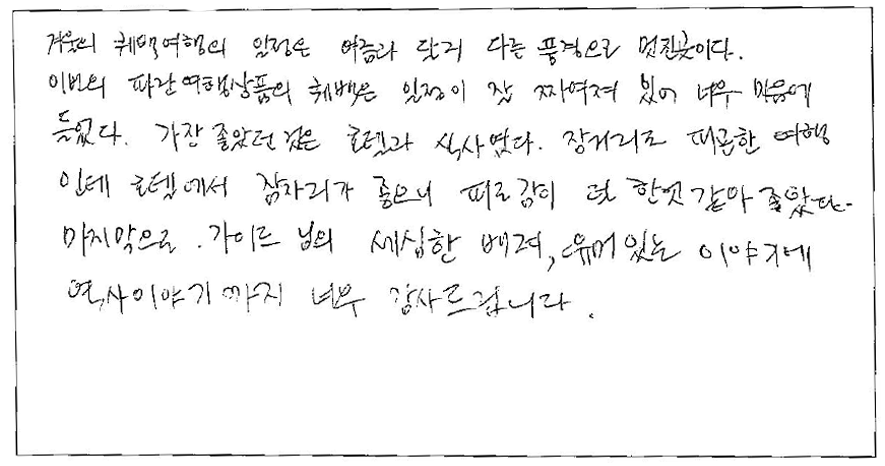 겨울의 퀘백여행의 일정은 여름과 달리 다른 풍경으로 멋진곳이다.
이번의 파란여행상품의 퀘백은 일정이 잘 짜여져 있어 너무 마음에
들었다. 가장 좋았던 것은 호텔과 식사였다. 장거리로 피곤한 여행
인데 호텔에서 잠자리가 좋으니 피로감이 덜 한것 같아 좋았다.
마지막으로 . 가이드 님의 세심한 배려, 유머있는 이야기에
역사이야기 까지 너무 감사드립니다.